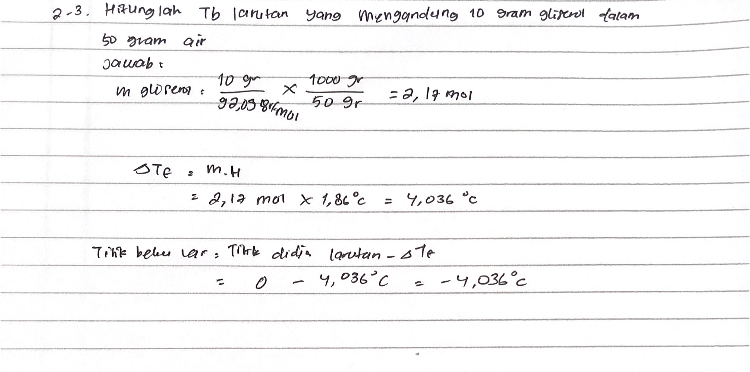 2-3. Hitunglah Tb larutan yang mengandung 10 gram gliserol dalam
50 gram air
Jawab :
m gliserol : 10 gr / 92,09 gr/mol × 1000 gr / 50 gr = 2,17 mol
ΔTf = m.H
= 2,17 mol × 1,86°C = 4,036 °C
Titik beku lar = Titik didih larutan - ΔTf
= 0 - 4,036°C = -4,036°C